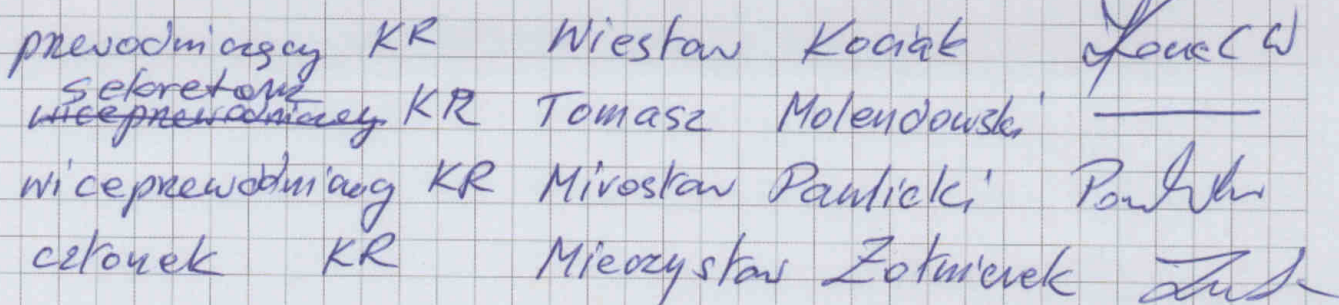 przewodniczący KR Wiesław Kociak
sekretarz
wiceprzewodniczący KR Tomasz Molendowski
wiceprzewodniczący KR Mirosław Pawlicki
członek KR Mieczysław Żołnierek